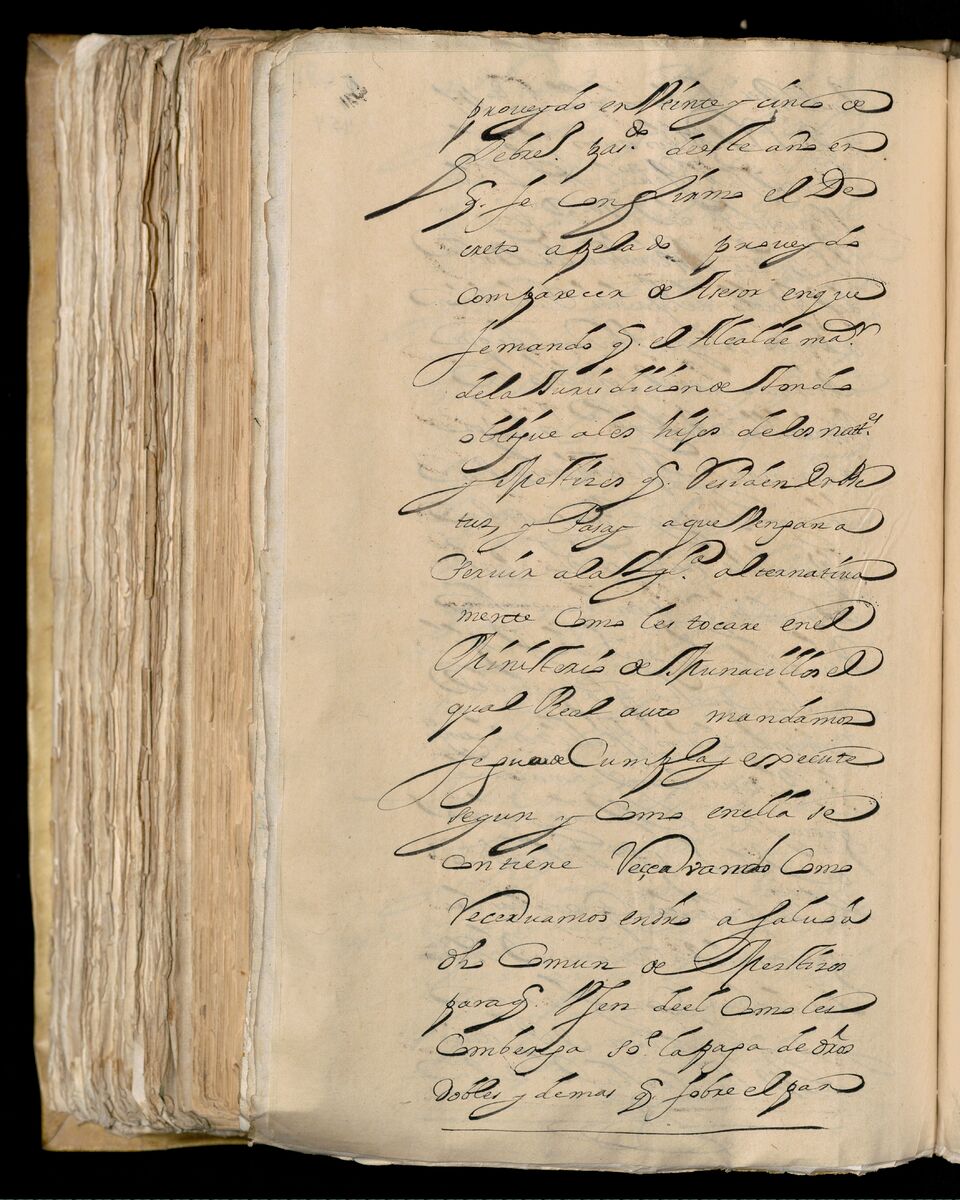 proveydo en Veinte y cinco de
Febre.ͦ pas.do deeste año en
q.e se Confirmo el De
creto apelado proveydo
Comparecer de Asesor enque
semando q.e el Alcalde ma.or
dela Jurisdicion de Tondo
obligue alos hijos delos nat.es
y Mestizos q.e Residen
y Pasay aque Vengan a
Servir ala Ygl.a alternativa
mente Como les tocare enel
Ministerio de Munacillos el
qual Real auto mandamos
se guarde Cumpla y execute
segun y Como enella se
Contiene Reçervando Como
Recervamos endro a saluo a
dho Comun de Mestizos
paraq.e Vsen deel Como les
Combenga so.e lapaga de dros
dobles y demas q.e sobre el par